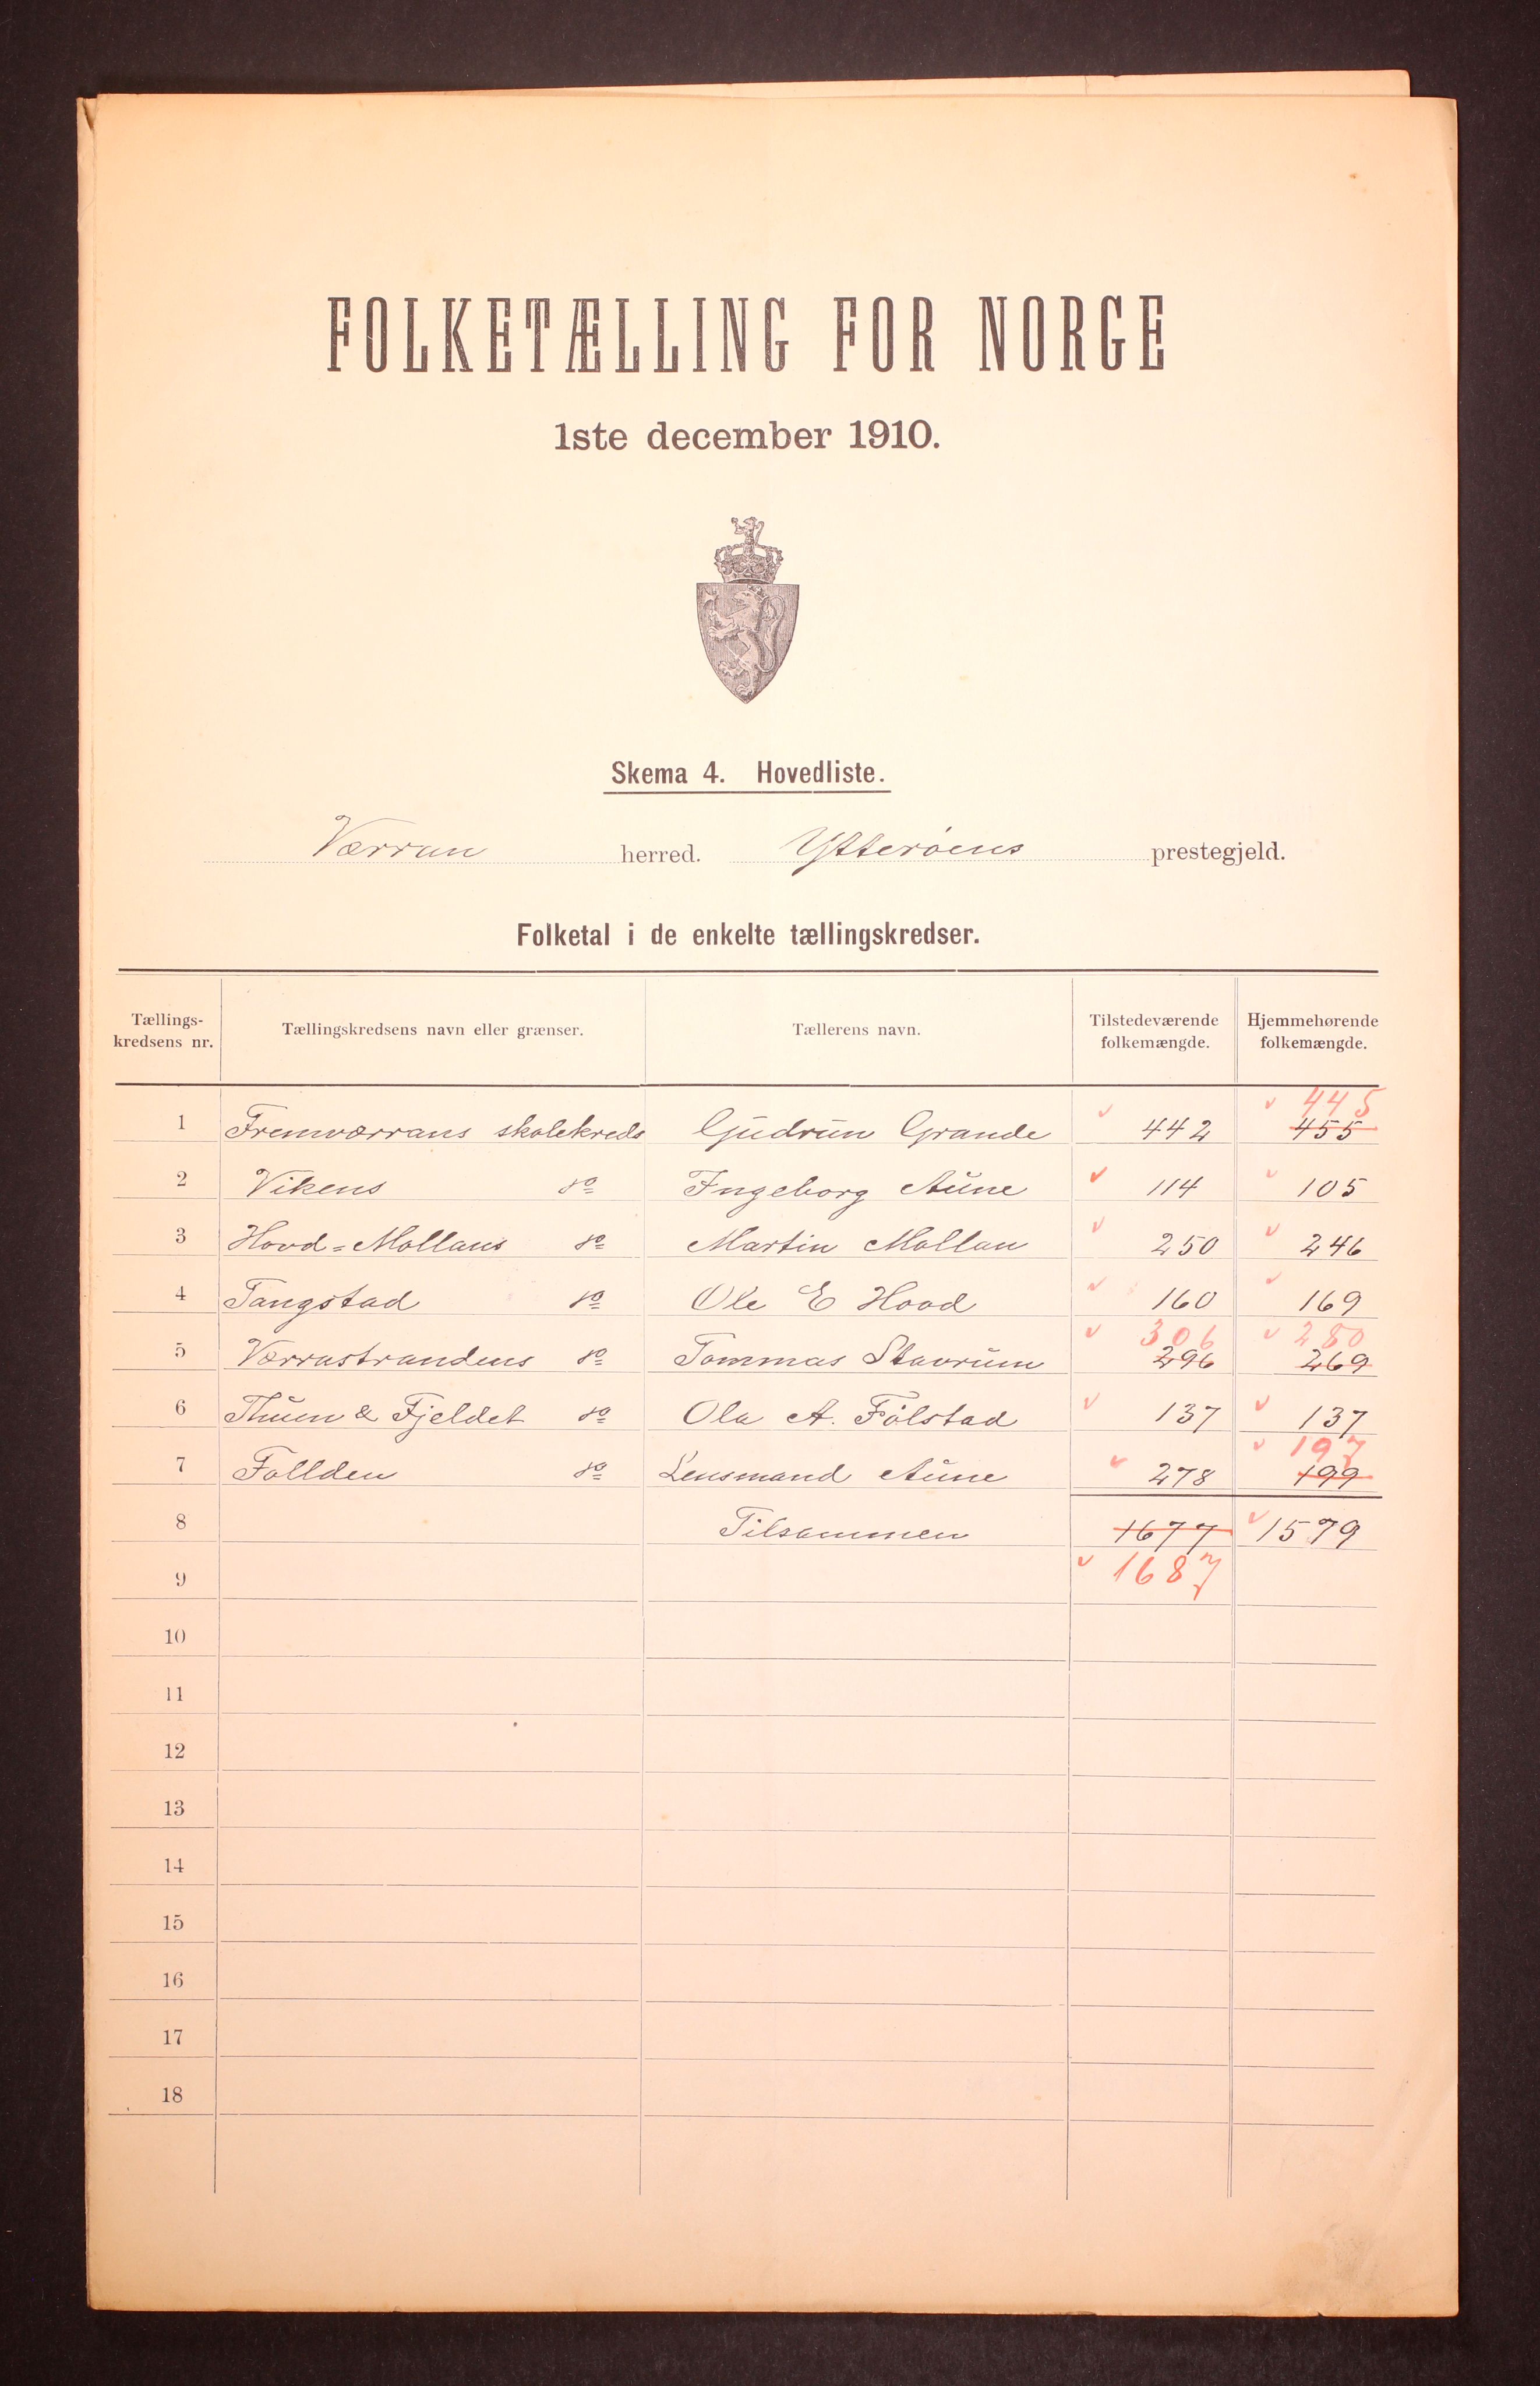 FOLKETÆLLING FOR NORGE
1ste december 1910.
Skema 4. Hovedliste.
Værran herred. Ytterøens prestegjeld.
Folketal i de enkelte tællingskredser.
Tællings-
kredsens nr.
Tællingskredsens navn eller grænser.
Tællerens navn.
Tilstedeværende
folkemængde.
Hjemmehørende
folkemængde.
445
1 Fremværrans skolekreds Gudrun Grande 442 455
2 Vikens do 114 Ingeborg Aune 105
3 Hovd-Mollans do Martin Mollan 250 246
4 Tangstad do Ole E Hovd 160 169
306 280
5 Værrastrandens do Tommas Stavrum 296 269
6 Thuen & Fjeldet do Ola A. Følstad 137 137
197
7 Follden do Lensmand Aune 278 199
8 Tilsammen 1677 1579
9 1687
10
11
12
13
14
15
16
17
18